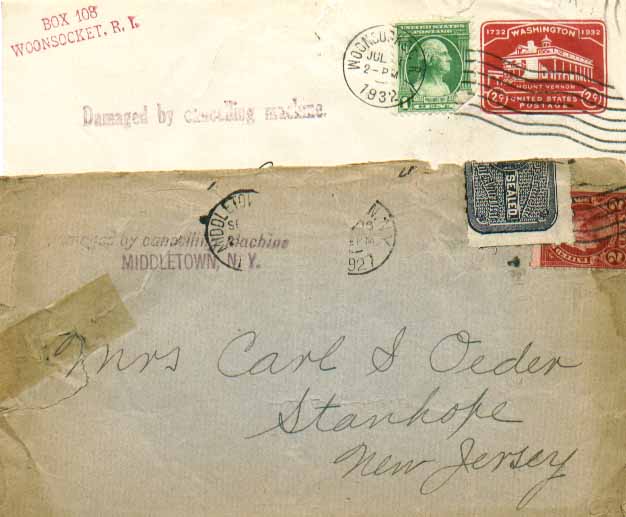 BOX 108
WOONSOCKET, R. I.
UNITED STATES
POSTAGE
1732 WASHINGTON 1932
MOUNT VERNON
UNITED STATES
POSTAGE
JUL
2-PM
1932
Damaged by cancelling machine.
MIDDLETOWN
N.Y.
PM
192
SEALED
Damaged by cancelling Machine
MIDDLETOWN, N. Y.
Mrs Carl S Oeder
Stanhope
New Jersey